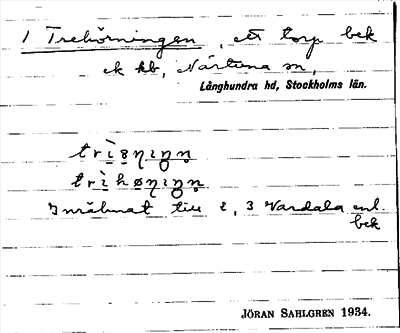 1 Trehörningen, ett torp bek
ek kb, Närtuna sn,
Långhundra hd, Stockholms län.
trìsnɩŋn
trì hønɩŋn
Inräknat till 2, 3 Vardala enl.
bek
JÖRAN SAHLGREN 1934.